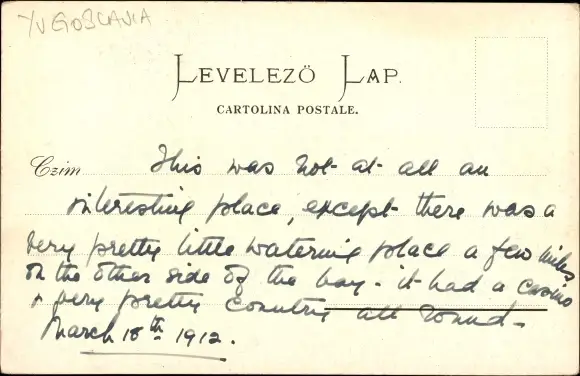 YUGOSLAVIA
LEVELEZŐ LAP.
CARTOLINA POSTALE.
Czim
This was not at all an
interesting place, except there was a
very pretty little watering place a few miles
on the other side of the bay - it had a casino
& very pretty country all round -
March 18th 1912.